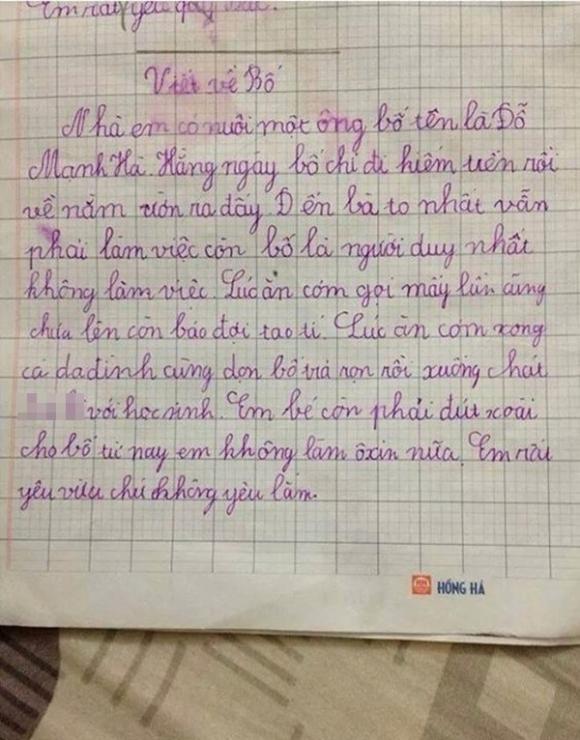 Em rất yêu quý
Viết về Bố
Nhà em có nuôi một ông bố tên là Đỗ
Mạnh Hà. Hằng ngày bố chỉ đi hiếm tiền rồi
về nằm ườn ra đấy. Đến bà to nhất vẫn
phải làm việc còn bố là người duy nhất
không làm việc. Lúc ăn cơm gọi mấy lần cũng
chưa lên còn bảo đợi tao tí. Lúc ăn cơm xong
cả da đình cùng dọn bố trả rọn rồi xuống chát
với học sinh. Em bé còn phải đút xoài
cho bố từ nay em không làm ôxin nữa. Em rất
yêu vừa chứ không yêu lắm.
HỒNG HÀ